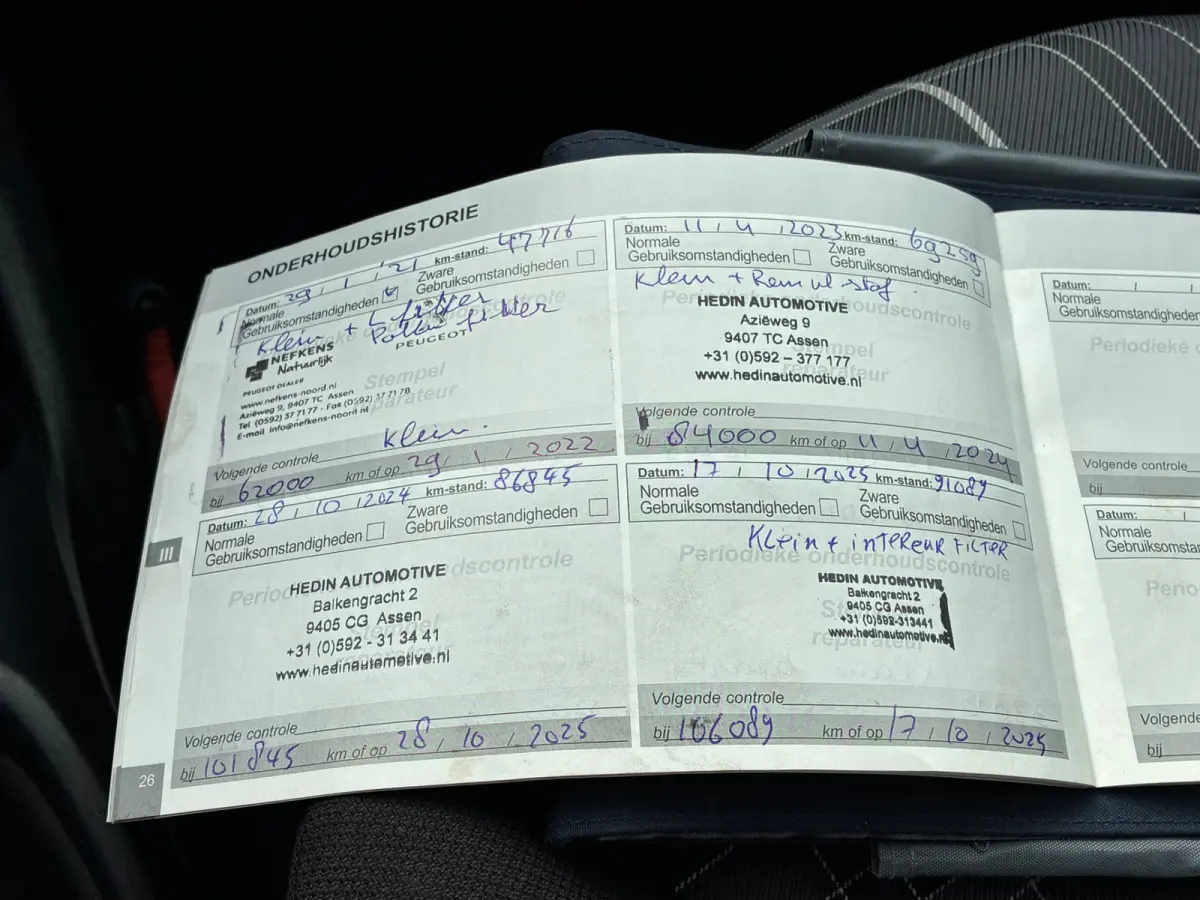 ONDERHOUDSHISTORIE
Datum: 29 / 1 / '21 km-stand: 47716
Normale Gebruiksomstandigheden Zware Gebruiksomstandigheden
Klein + L filter
Pollen filter
NEFKENS PEUGEOT
Natuurlijk
PEUGEOT DEALER
www.nefkens-noord.nl
Aziëweg 9, 9407 TC Assen
Tel (0592) 37 71 77 - Fax (0592) 37 71 78
E-mail info@nefkens-noord.nl
Stempel
reparateur
Volgende controle Klein.
bij 62000 km of op 29 / 1 / 2022
Datum: 11 / 4 / 2023 km-stand: 69259
Normale Gebruiksomstandigheden Zware Gebruiksomstandigheden
Klein + Remvlstof
Periodieke onderhoudscontrole
HEDIN AUTOMOTIVE
Aziëweg 9
9407 TC Assen
+31 (0)592 - 377 177
www.hedinautomotive.nl
Stempel
reparateur
Volgende controle
bij 84000 km of op 11 / 4 / 2024
Datum: 28 / 10 / 2024 km-stand: 86845
Normale Gebruiksomstandigheden Zware Gebruiksomstandigheden
Periodieke onderhoudscontrole
HEDIN AUTOMOTIVE
Balkengracht 2
9405 CG Assen
+31 (0)592 - 31 34 41
www.hedinautomotive.nl
Stempel
reparateur
Volgende controle
bij 101845 km of op 28 / 10 / 2025
Datum: 17 / 10 / 2025 km-stand: 91089
Normale Gebruiksomstandigheden Zware Gebruiksomstandigheden
Klein + inTEREUR FILTER
Periodieke onderhoudscontrole
HEDIN AUTOMOTIVE
Balkengracht 2
9405 CG Assen
+31 (0)592-313441
www.hedinautomotive.nl
reparateur
Volgende controle
bij 106089 km of op 17 / 10 / 2025
III
26
Datum: / /
Normale
Gebruiksomstandigheden
Periodieke
Volgende controle
bij
Datum: /
Normale
Gebruiksomstandig
Perio
Volgende
bij